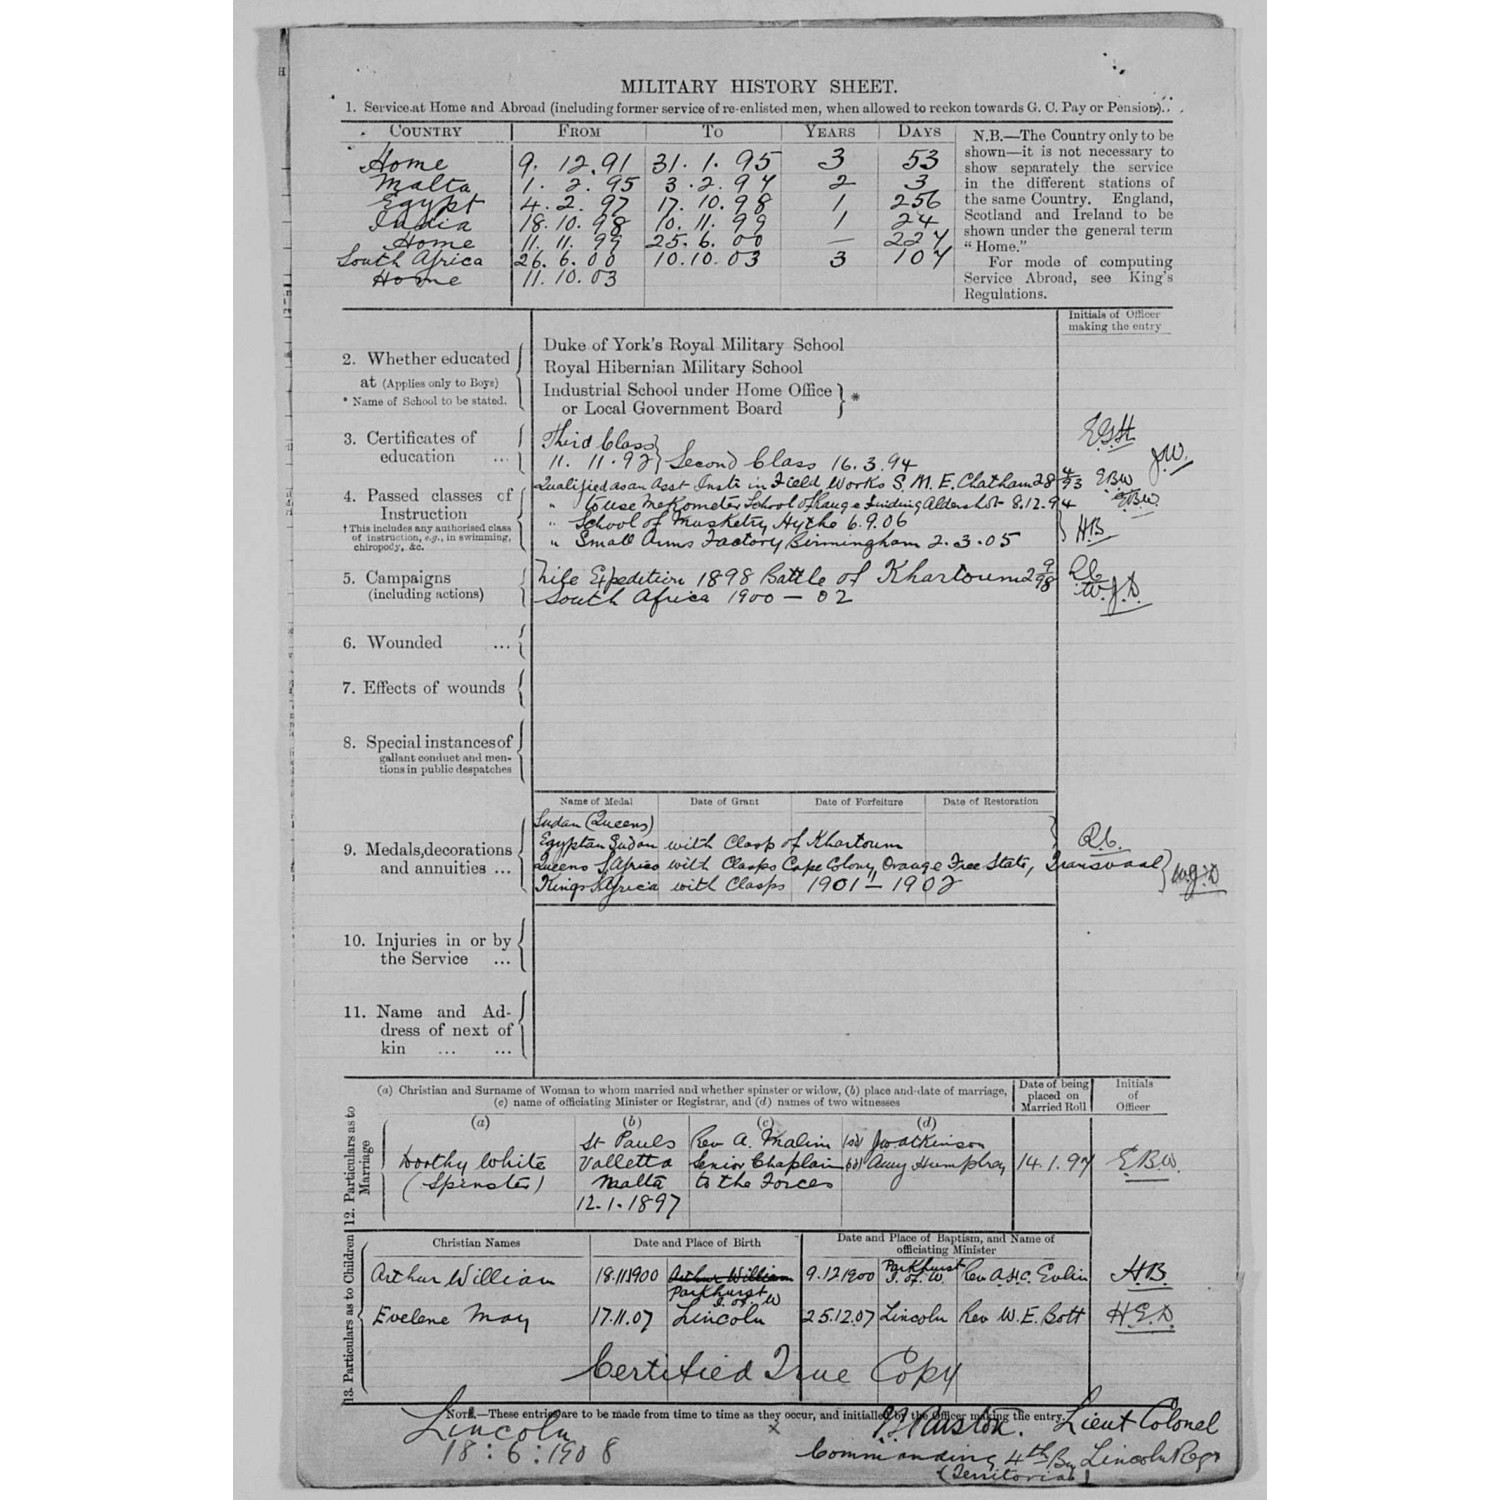 MILITARY HISTORY SHEET.
1. Service at Home and Abroad (including former service of re-enlisted men, when allowed to reckon towards G. C. Pay or Pension).
COUNTRY FROM TO YEARS DAYS
Home 9. 12. 91 31. 1. 95 3 53
Malta 1. 2. 95 3. 2. 97 2 3
Egypt 4. 2. 97 17. 10. 98 1 256
India 18. 10. 98 10. 11. 99 1 24
Home 11. 11. 99 25. 6. 00 — 227
South Africa 26. 6. 00 10. 10. 03 3 107
Home 11. 10. 03
N.B.—The Country only to be
shown—it is not necessary to
show separately the service
in the different stations of
the same Country. England,
Scotland and Ireland to be
shown under the general term
“Home.”
For mode of computing
Service Abroad, see King's
Regulations.
Initials of Officer
making the entry
2. Whether educated
at (Applies only to Boys)
* Name of School to be stated.
Duke of York's Royal Military School
Royal Hibernian Military School
Industrial School under Home Office
or Local Government Board } *
3. Certificates of
education ...
Third Class
11. 11. 92 } Second Class 16. 3. 94
E.G.H.
J.W.
4. Passed classes of
Instruction
† This includes any authorised class
of instruction, e.g., in swimming,
chiropody, &c.
Qualified as an Asst Instr in Field Works S. M. E. Chatham 28 4/93 EBW
" to use Mekometer School of Range Finding Aldershot 8.12.94 E.B.W.
" School of Musketry Hythe 6.9.06
" Small Arms Factory Birmingham 2.3.05 } H.B
5. Campaigns
(including actions)
Nile Expedition 1898 Battle of Khartoum 2 9/98 R.C.
South Africa 1900 — 02 W.J.D.
6. Wounded ...
7. Effects of wounds
8. Special instances of
gallant conduct and men-
tions in public despatches
Name of Medal Date of Grant Date of Forfeiture Date of Restoration
9. Medals, decorations
and annuities ...
Sudan (Queens)
Egyptan Sudan with Clasp of Khartoum R.C.
Queens S Africa with Clasps Cape Colony, Orange Free State, Transvaal
Kings S Africa with Clasps 1901 — 1902 } W.J.D
10. Injuries in or by
the Service ...
11. Name and Ad-
dress of next of
kin ... ...
12. Particulars as to
Marriage
(a) Christian and Surname of Woman to whom married and whether spinster or widow, (b) place and date of marriage,
(c) name of officiating Minister or Registrar, and (d) names of two witnesses
Date of being
placed on
Married Roll
Initials
of
Officer
(a) (b) (c) (d)
Dorthy White
(Spinster)
St Pauls
Valletta
Malta
12.1.1897
Rev A. Malim
Senior Chaplain
to the Forces
J W Atkinson
Amy Humphray
14.1.97
E.B.W.
13. Particulars as to Children
Christian Names Date and Place of Birth Date and Place of Baptism, and Name of
officiating Minister
Arthur William 18.11.1900 Arthur William
Parkhurst
I. of. W
9.12.1900 Parkhurst
I. of. W. Rev A.H.C. H.B.
Evelene May 17.11.07 Lincoln 25.12.07 Lincoln Rev W. E. Bott H.E.D.
Certified True Copy
NOTE.—These entries are to be made from time to time as they occur, and initialled by the Officer making the entry.
Lincoln
18 : 6 : 1908
Lieut Colonel
Commanding 4th Bn Lincoln Regt
(Territorial)